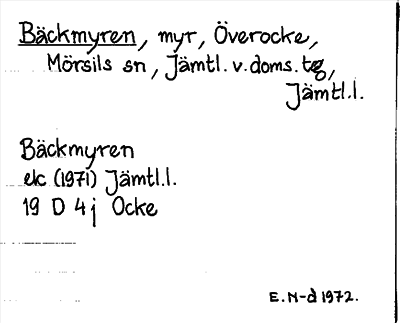 Bäckmyren, myr, Överocke,
Mörsils sn, Jämtl. v. doms. tg,
Jämtl. l.
Bäckmyren
ek (1971) Jämtl. l.
19 D 4 j Ocke
E. N-d 1972.